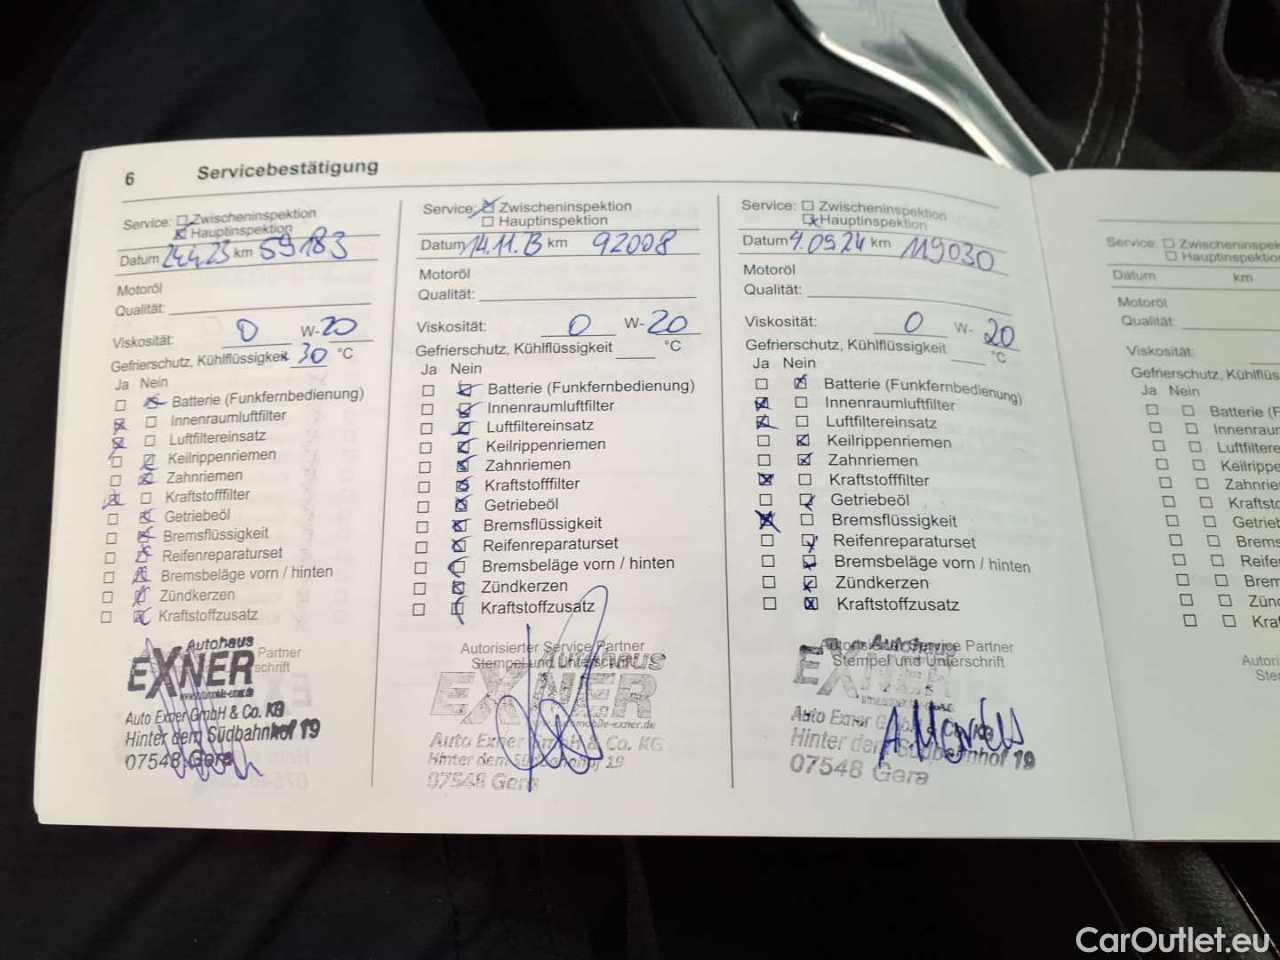 6 Servicebestätigung
Service: Zwischeninspektion
Hauptinspektion
Datum 24.4.23 km 59183
Motoröl
Qualität:
Viskosität: 0 W-20
Gefrierschutz, Kühlflüssigkeit 30 °C
Ja Nein
Batterie (Funkfernbedienung)
Innenraumluftfilter
Luftfiltereinsatz
Keilrippenriemen
Zahnriemen
Kraftstofffilter
Getriebeöl
Bremsflüssigkeit
Reifenreparaturset
Bremsbeläge vorn / hinten
Zündkerzen
Kraftstoffzusatz
Partner
Autohaus
EXNER
Auto Exner GmbH & Co. KG
Hinter dem Südbahnhof 19
07548 Gera
Service: Zwischeninspektion
Hauptinspektion
Datum 14.11.23 km 92008
Motoröl
Qualität:
Viskosität: 0 W-20
Gefrierschutz, Kühlflüssigkeit °C
Ja Nein
Batterie (Funkfernbedienung)
Innenraumluftfilter
Luftfiltereinsatz
Keilrippenriemen
Zahnriemen
Kraftstofffilter
Getriebeöl
Bremsflüssigkeit
Reifenreparaturset
Bremsbeläge vorn / hinten
Zündkerzen
Kraftstoffzusatz
Autorisierter Service Partner
Stempel und Unterschrift
Autohaus
EXNER
Auto Exner GmbH & Co. KG
Hinter dem Südbahnhof 19
07548 Gera
Service: Zwischeninspektion
Hauptinspektion
Datum 4.09.24 km 119030
Motoröl
Qualität:
Viskosität: 0 W- 20
Gefrierschutz, Kühlflüssigkeit °C
Ja Nein
Batterie (Funkfernbedienung)
Innenraumluftfilter
Luftfiltereinsatz
Keilrippenriemen
Zahnriemen
Kraftstofffilter
Getriebeöl
Bremsflüssigkeit
Reifenreparaturset
Bremsbeläge vorn / hinten
Zündkerzen
Kraftstoffzusatz
Autorisierter Service Partner
Stempel und Unterschrift
EXNER
Auto Exner GmbH & Co. KG
Hinter dem Südbahnhof 19
07548 Gera
Service: Zwischeninspe
Hauptinspektio
Datum km
Motoröl
Qualität:
Viskosität:
Gefrierschutz, Kühlflüss
Ja Nein
Batterie (F
Innenraum
Luftfiltere
Keilrippe
Zahnrie
Kraftsto
Getrieb
Brems
Reife
Brem
Zün
Kra
Autori
Ste
CarOutlet.eu